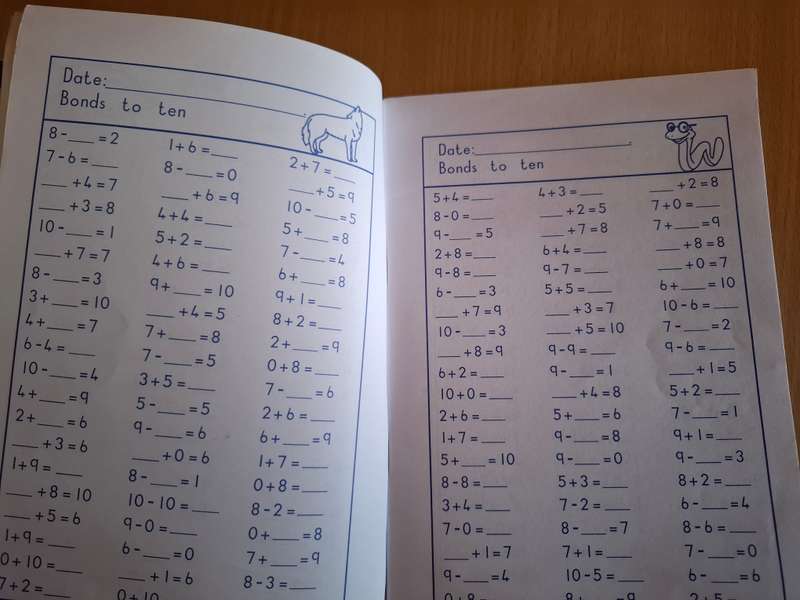 Date:
Bonds to ten
8-___=2
7-6=___
___+4=7
___+3=8
10-___=1
___+7=7
8-___=3
3+___=10
4+___=7
6-4=___
10-___=4
4+___=9
2+___=6
___+3=6
1+9=___
___+8=10
___+5=6
1+9=___
0+10=___
7+2=___
1+6=___
8-___=0
___+6=9
4+4=___
5+2=___
4+6=___
9+___=10
___+4=5
7+___=8
7-___=5
3+5=___
5-___=5
9-___=6
___+0=6
8-___=1
10-10=___
9-0=___
6-___=0
___+1=6
0+10
2+7=___
___+5=9
10-___=5
5+___=8
7-___=4
6+___=8
9+1=___
8+2=___
2+___=9
0+8=___
7-___=6
2+6=___
6+___=9
1+7=___
0+8=___
8-2=___
0+___=8
7+___=9
8-3=___
Date:
Bonds to ten
5+4=___
8-0=___
9-___=5
2+8=___
9-8=___
6-___=3
___+7=9
10-___=3
___+8=9
6+2=___
10+0=___
2+6=___
1+7=___
5+___=10
8-8=___
3+4=___
7-0=___
___+1=7
9-___=4
0+8=___
4+3=___
___+2=5
___+7=8
6+4=___
9-7=___
5+5=___
___+3=7
___+5=10
9-9=___
9-___=1
___+4=8
5+___=6
9-___=8
9-___=0
5+3=___
7-2=___
8-___=7
7+1=___
10-5=___
8+___=9
___+2=8
7+0=___
7+___=9
___+8=8
___+0=7
6+___=10
10-6=___
7-___=2
9-6=___
___+1=5
5+2=___
7-___=1
9+1=___
9-___=3
8+2=___
6-___=4
8-6=___
7-___=0
6-___=6
2+5=___